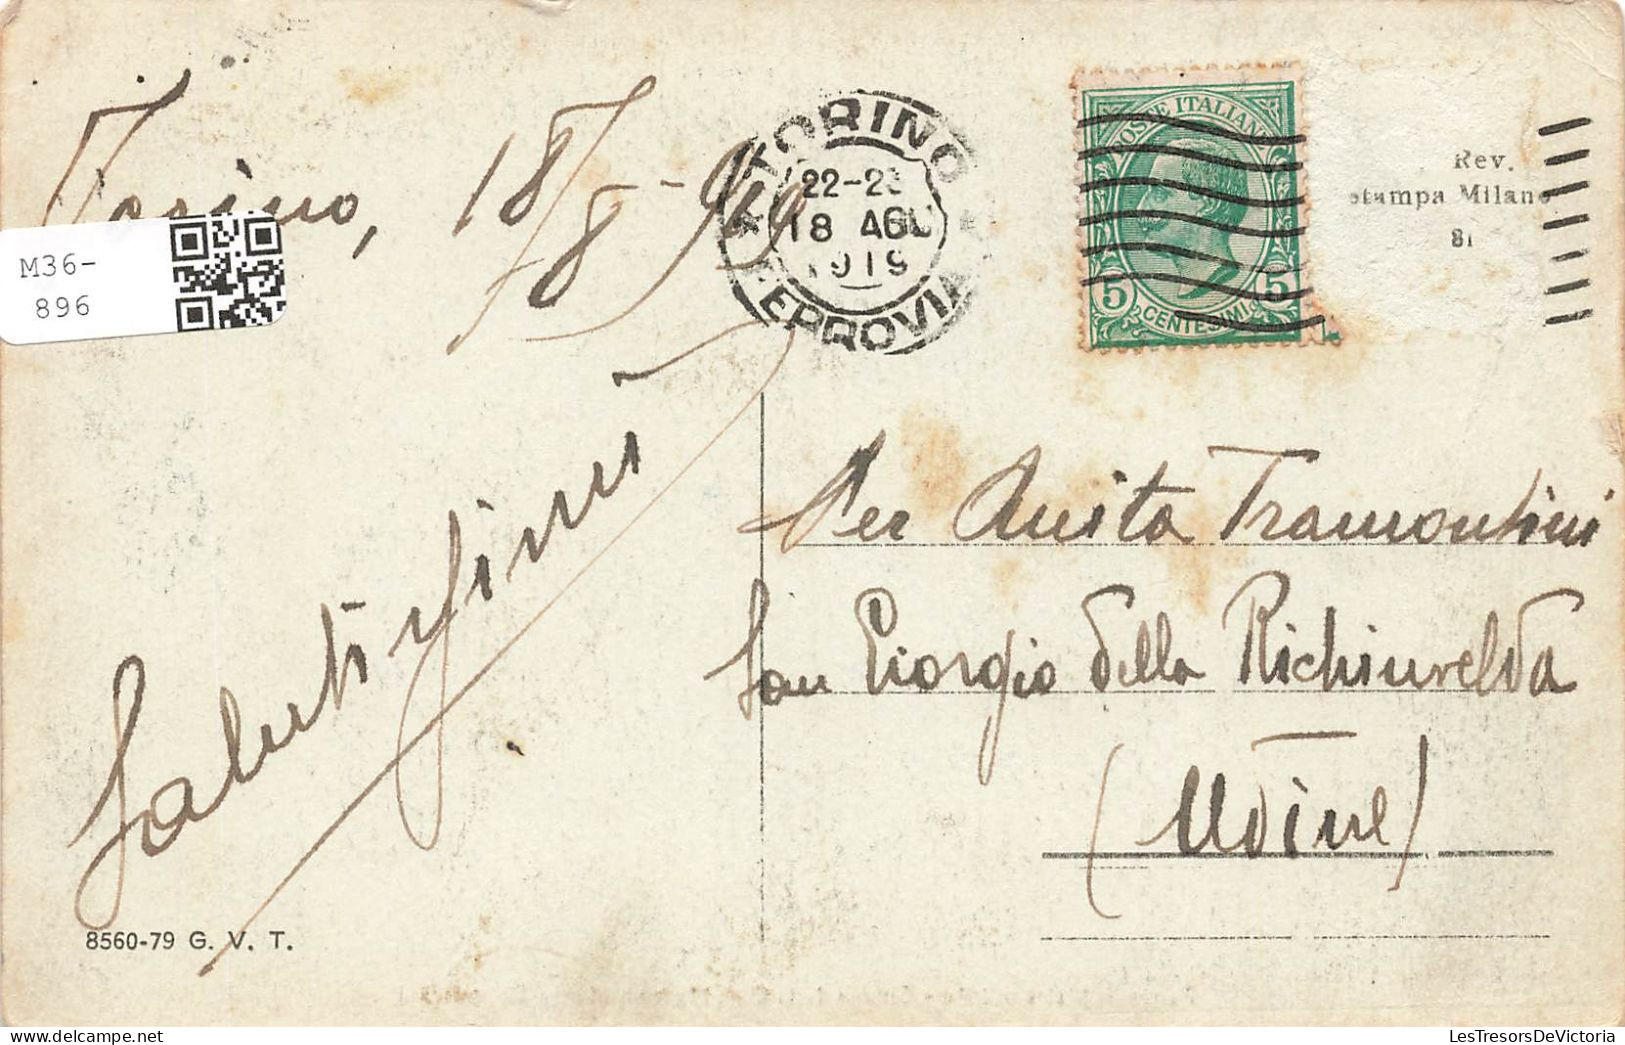 Torino, 18/8-919
M36-
896
TORINO
22-23
18 AGO
1919
FERROVIA
POSTE ITALIANE
5 CENTESIMI 5
Rev.
Stampa Milano
81
Saluti
Per Anita Tramontini
San Giorgio della Richinvelda
(Udine)
8560-79 G. V. T.
LesTresorsDeVictoria